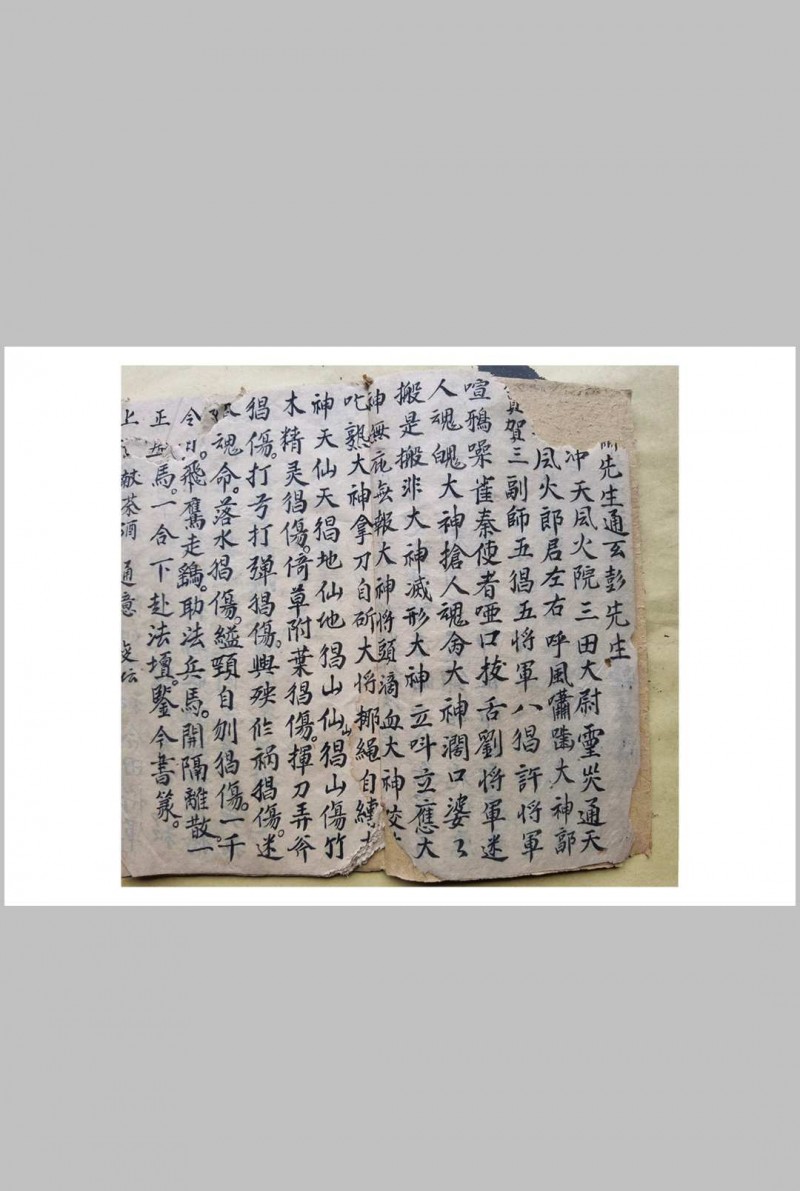 先生通玄彭先生
冲天風火院三田大尉靈災通天
風火郎居左右呼風嘯噛大神部
賀三副師五猖五將軍八猖許將軍
喧鴉噪雀秦使者啞口拔舌劉將軍迷
人魂魄大神搶人魂大神濶口婆々
搬是搬非大神滅形大神立呌立應大
神無庇無報大神將頭滴血大神咬
叱熟大神拿刀自斫大將挪繩自縛
神天仙天猖地仙地猖山仙山猖山傷竹
木精灵猖傷。倚草附葉猖傷。揮刀弄斧
猖傷。打弓打弹猖傷。興殃作祸猖傷。迷
魂命。落水猖傷。縊頸自刎猖傷。一千
令。飛鷹走鷂。助法兵馬。開隔離散一
正馬。一合下赴法壇。鑒今書篆。
上献茶酒 通意